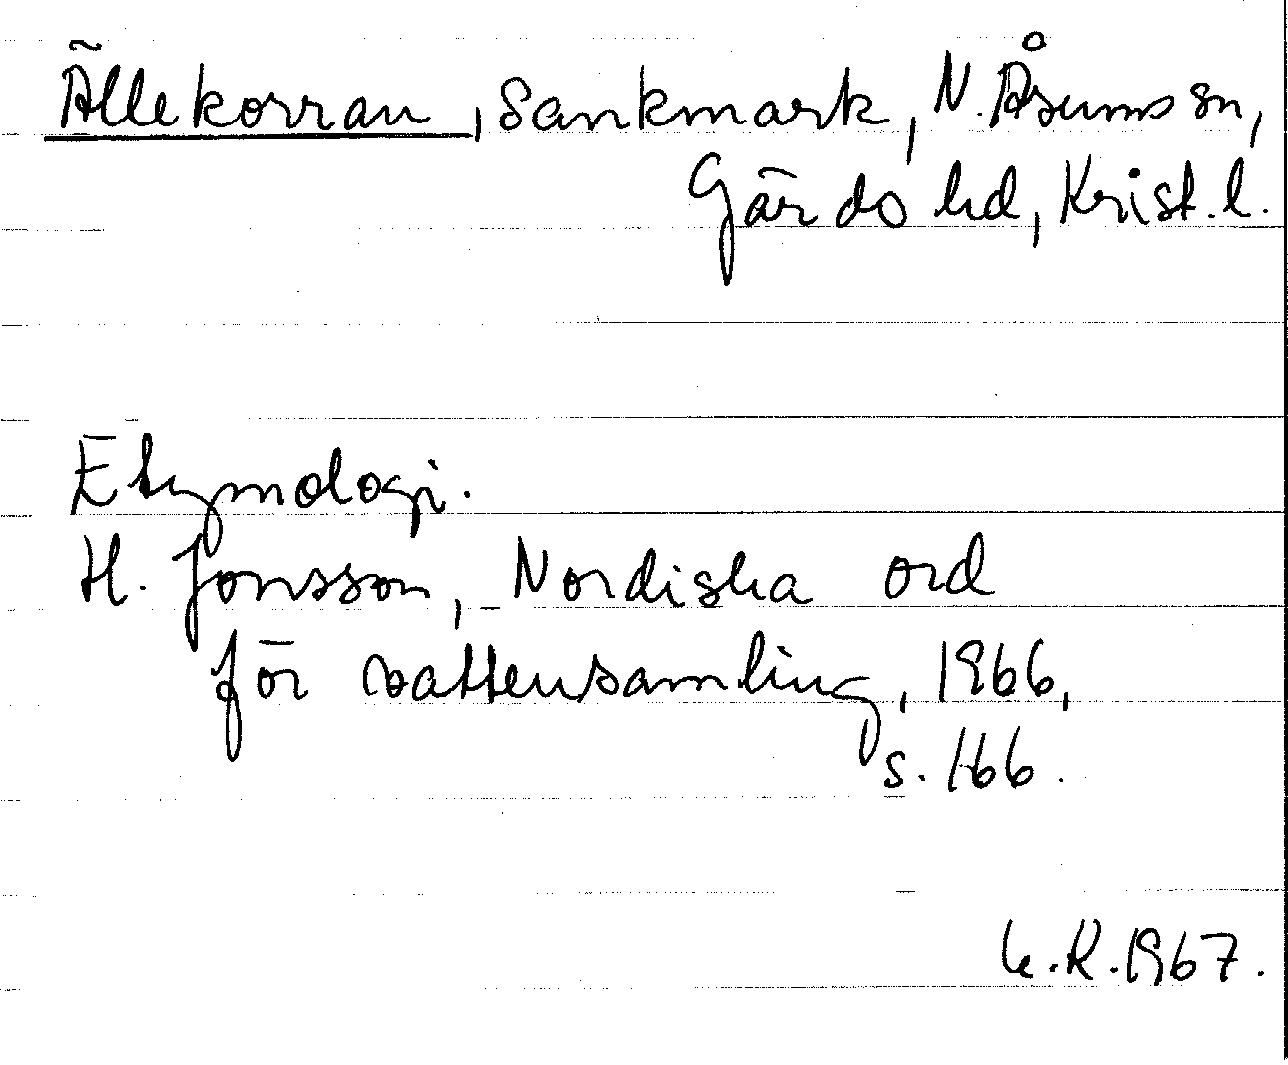 Ällekorran, Sankmark, N. Åsums sn,
Gärds hd, Krist. l.
Etymologi.
H. Jonsson, Nordiska ord
för vattensamling, 1966,
s. 166.
K. R. 1967.